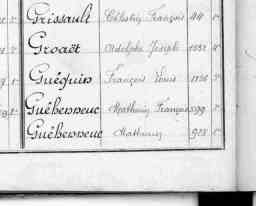 Grissault Célestin François 44
Groaët Adolphe Joseph
Guéguin François Louis
Guéhenneuc Mathurin François 599
Guéhenneuc Mathurin 928